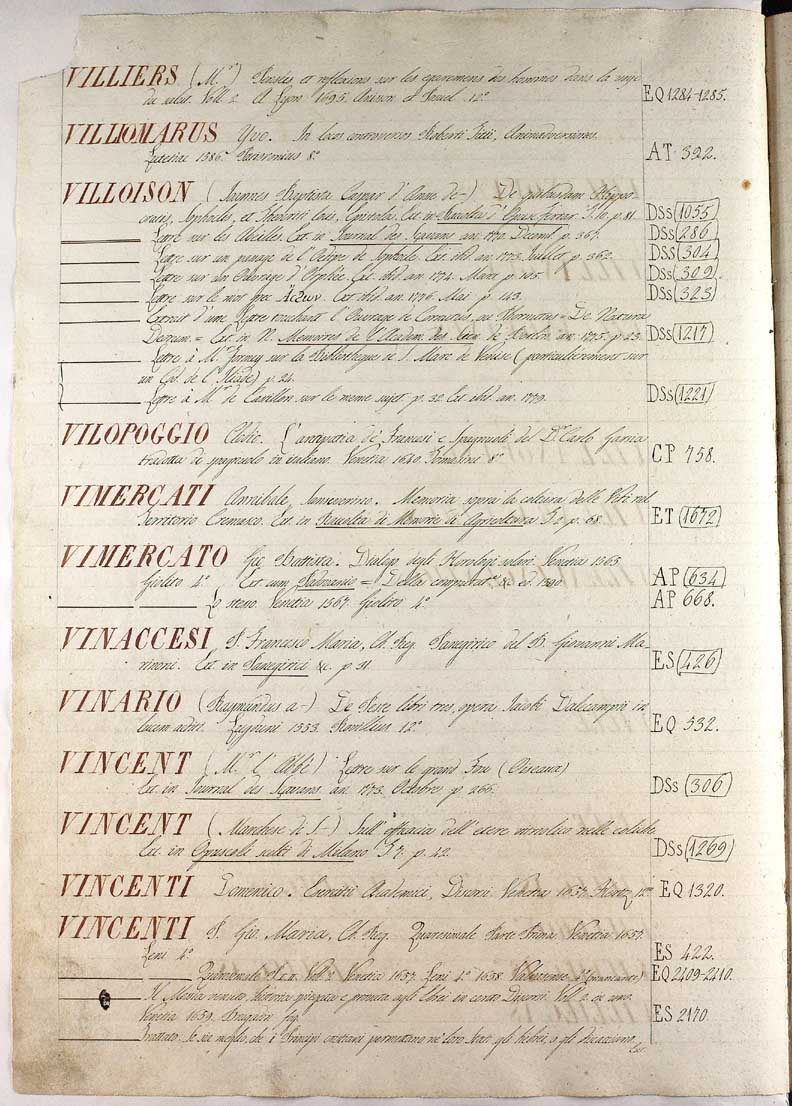 VILLIERS (M.r) Pensées et reflexions sur les egaremens des hommes dans la voye
du salut. Voll. 2. A Lyon 1695. Anisson et 12.º EQ 1284-1285.
VILLIOMARUS Yvo. In locos controversos Roberti Titii, Animadversiones.
Lutetiae 1586. Patissonius 8.º AT 392.
VILLOISON (Joannes Baptista Caspar d'Anse de-) De quibusdam Hippo-
cratis, Sophoclis, et Theocriti locis, Epistola. Ext. in Raccolta d' Opusc. T. 16. p. 81. DSs 1055
Lettre sur les Abeilles. Ext. in Journal des Sçavans an. 1770. Decemb. p. 367. DSs 286
Lettre sur un passage de l' Oedipe de Sophocle. Ext. ibid. an. 1773. Juillet p. 362. DSs 304
Lettre sur un Ouvrage d' Ext. ibid. an. 1774. Mars p. 185. DSs 309
Lettre sur le mot grec Ext. ibid. an. 1776. Mai p. 143. DSs 323
Extrait d'une lettre touchant l' Ouvrage de Cornutus, ou Phornutus = De Natura
Deorum = Ext. in N. Memoires de l'Academ. des Scien. de Berlin an. 1775. p. 23. DSs 1217
Lettre à M.r Formey sur la Bibliotheque de S. Marc de Venise (particulierement sur
un Cod. de l' Iliade) p. 24.
Lettre à M.r de Castillon sur le meme sujet. p. 32. Ext. ibid. an. 1779. DSs 1221
VILOPOGGIO Clodio. L'antipatia de' Francesi e Spagnuoli del D.r Carlo Garcia
tradotta di spagnuolo in italiano. Venetia 1640. 8.º CP 758.
VIMERCATI Annibale, Sanseverino. Memoria sopra la coltura delle Viti nel
Territorio Cremasco. Ext. in Raccolta di Memorie di Agricoltura T. 2. p. 68. ET 1672
VIMERCATO Gio. Battista. Dialogo degli Horologi solari. Venetia 1565
Giolito 4.º Ext. cum = Della AP 634
Lo stesso Venetia 1567. Giolito 4.º AP 668.
VINACCESI P. Francesco Maria, Ch. Reg. Panegirico del B. Giovanni Ma-
rinoni. Ext. in Panegirici &c. p. 91. ES 426
VINARIO (Raymundus a-) De Peste libri tres, opera Jacobi Dalecampii in
lucem aditi. Lugduni 1553. Rovillius 12.º EQ 532.
VINCENT (M.r l'Abbé) Lettre sur le grand (Oiseau)
Ext. in Journal des Sçavans an. 1773. Octobre p. 266. DSs 306
VINCENT (Marchese di S.-) Sull' efficacia dell' etere vitriolico nelle coliche
Ext. in Opuscoli scelti di Milano T. 7. p. 42. DSs 1269
VINCENTI Domenico. Esercitii Academici, Discorsi. Venetia 1657. Hertz 12.º EQ 1320.
VINCENTI P. Gio. Maria, Ch. Reg. Quaresimale Parte Prima Venetia 1657.
Leni 4.º ES 422.
Quaresimale Voll. 2. Venetia 1657. Leni 4.º 1658. Valvasense 4.º (mancante) EQ 2409-2410.
Il Messia venuto, historia spiegata e provata agli Ebrei in cento Discorsi. Voll. 2. in uno.
Venetia 1659. fog. ES 2170.
Trattato: se sia meglio, che i Principi cristiani permettano ne' loro Stati gli hebrei, o gli discaccino.